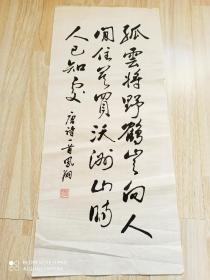 孤雲將野鶴豈向人
間住莫買沃洲山時
人已知處
唐詩一首